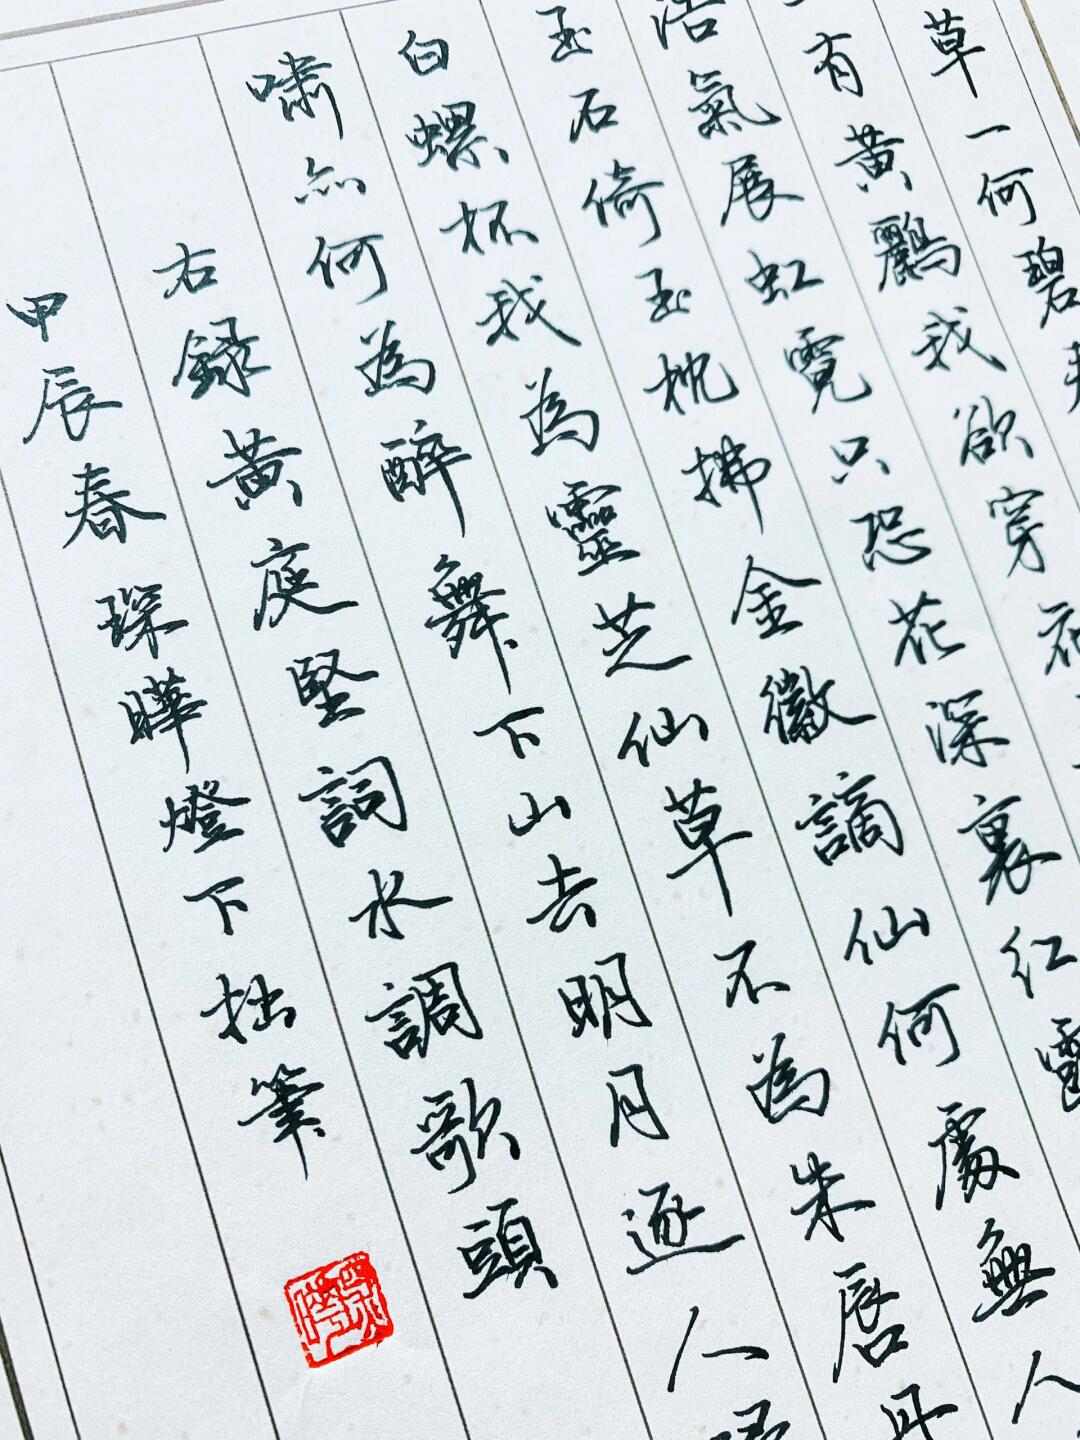 草一何碧
有黃鸝我欲穿
浩氣展虹霓只恐花深裏紅露
玉石倚玉枕拂金徽謫仙何處無人
白螺杯我為靈芝仙草不為朱唇丹
嘯亦何為醉舞下山去明月逐人歸
右錄黃庭堅詞水調歌頭
甲辰春琛曄燈下拙筆